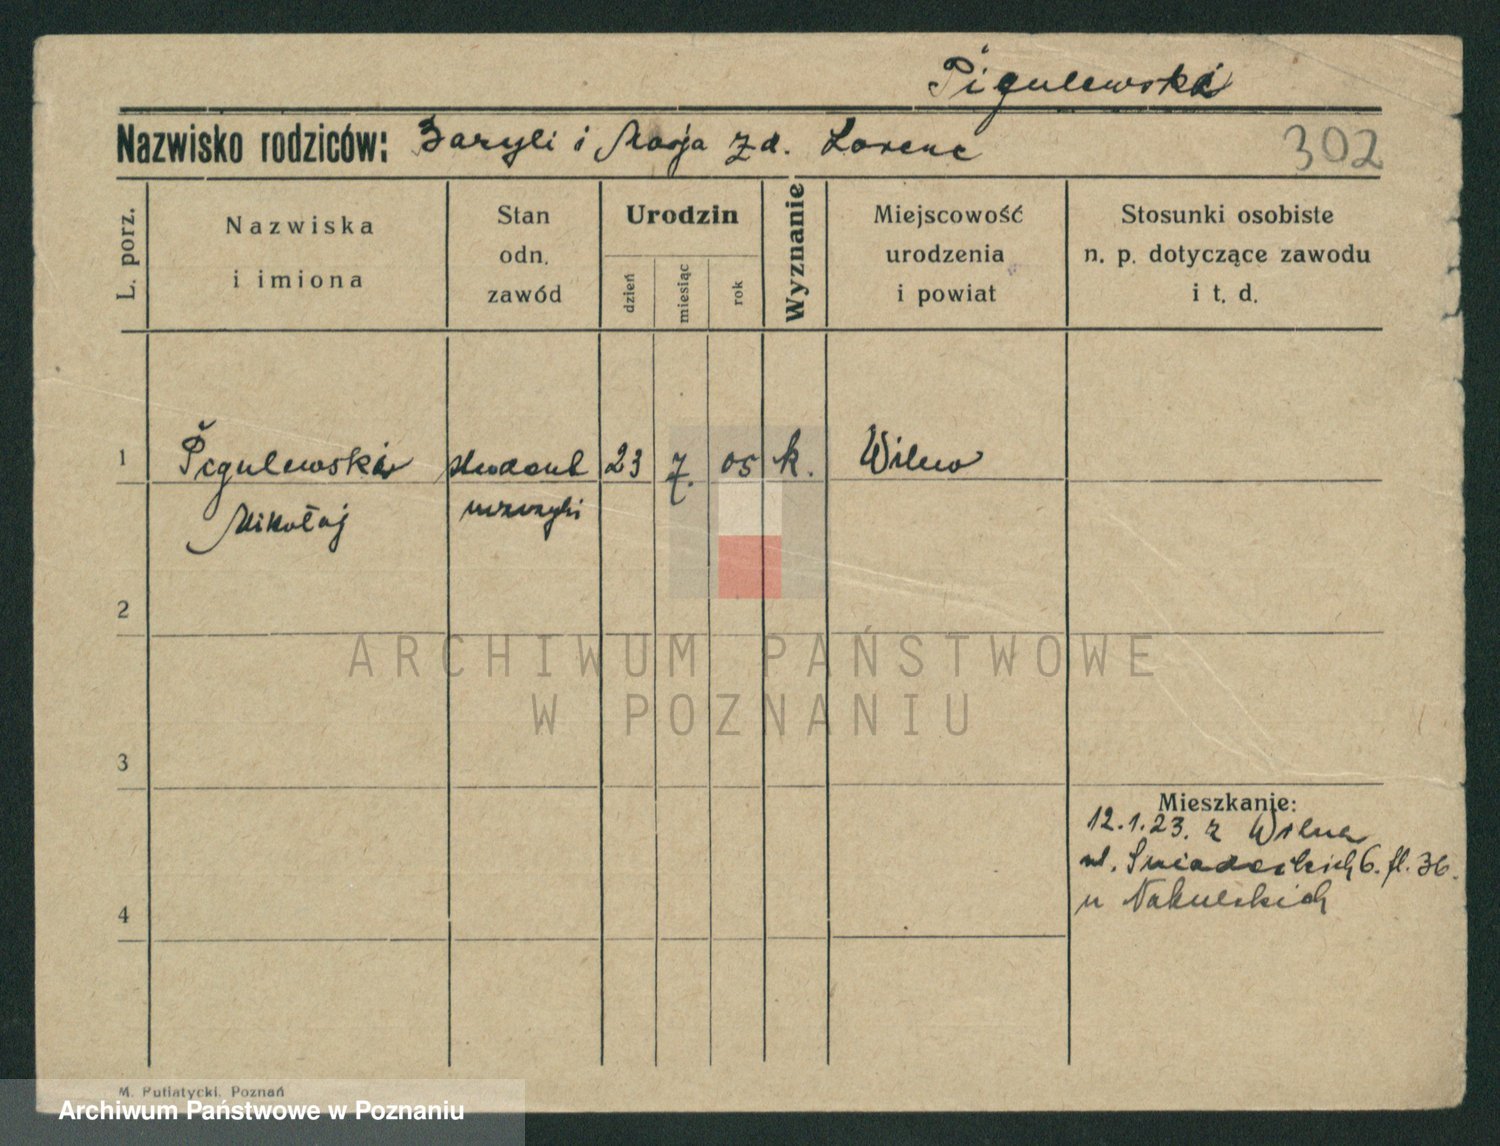 Pigulewski
Nazwisko rodziców: Bazyli i Marja zd. Lorenc
302
L. porz.
Nazwiska
i imiona
Stan
odn.
zawód
Urodzin
dzień
miesiąc
rok
Wyznanie
Miejscowość
urodzenia
i powiat
Stosunki osobiste
n. p. dotyczące zawodu
i t. d.
1
Pigulewski student 23 7. 05 k. Wilno
Mikołaj muzyki
2
ARCHIWUM PAŃSTWOWE
W POZNANIU
3
Mieszkanie:
12.1.23. z Wilna
ul. Śniadeckich 6. 36.
u Nakulskich
4
M. Putiatycki, Poznań
Archiwum Państwowe w Poznaniu